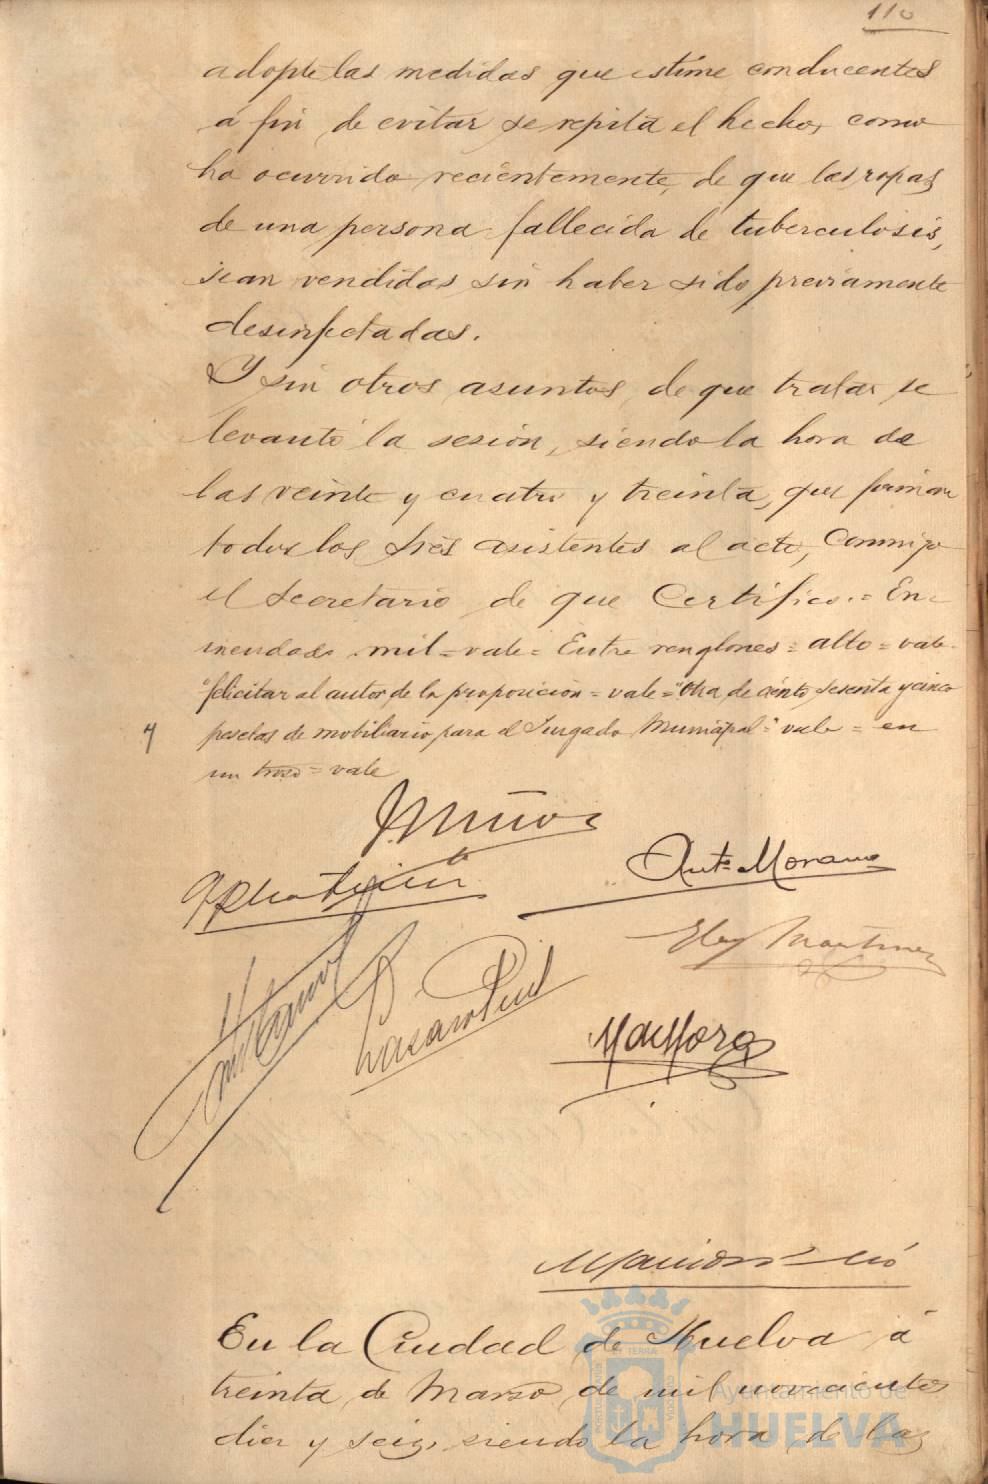 110
adopte las medidas que estime conducentes
á fin de evitar se repita el hecho, como
ha ocurrido recientemente, de que las ropas
de una persona fallecida de tuberculosis,
sean vendidas sin haber sido previamente
desinfectadas.
Y sin otros asuntos de que tratar se
levantó la sesión, siendo la hora de
las veinte y cuatro y treinta, que firman
todos los Sres asistentes al acto, conmigo
el Secretario de que Certifico.= En-
mendado mil=vale= Entre renglones= alto= vale
"felicitar al autor de la proposición= vale= "Otra de ciento sesenta y cinco
y pesetas de mobiliario para el Jurgado Municipal"= vale= en
un troso= vale
J. Muñoz
Ant.º Moreno
Eloy Martinez
Lazaro
En la Ciudad de Huelva á
treinta de Marzo de mil novecientos
diez y seis, siendo la hora de las
Ayuntamiento de
HUELVA